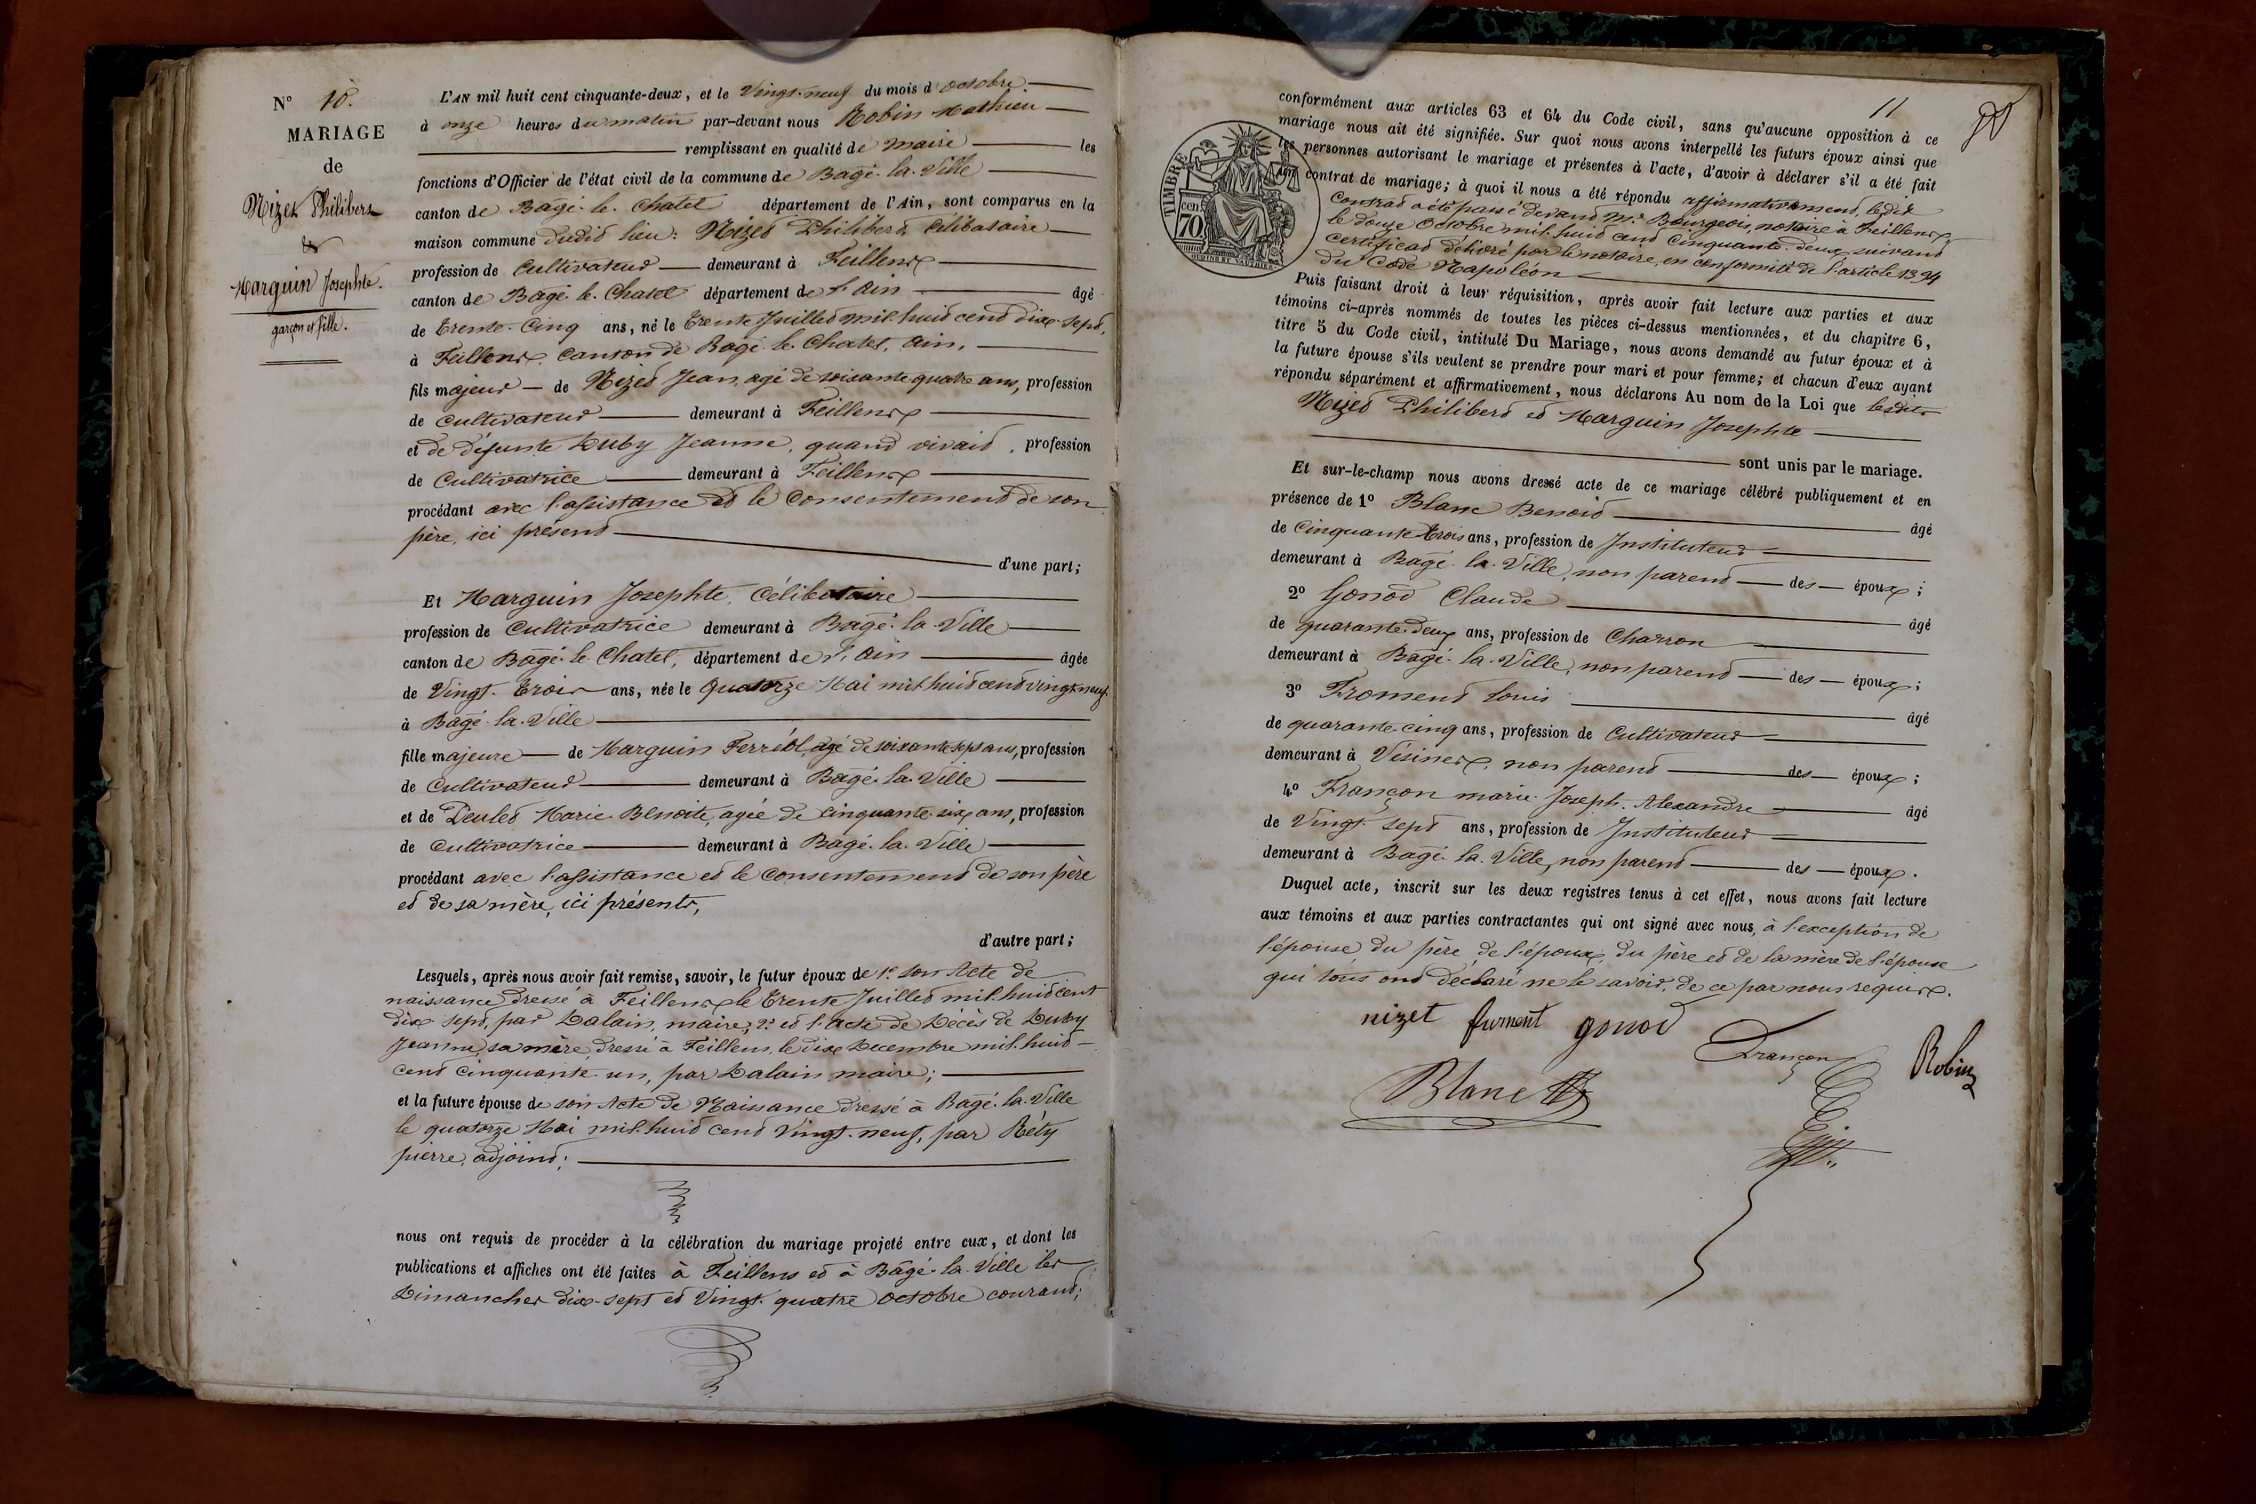 N° 10.
MARIAGE
de
Nizet Philibert
&
Marguin Josephte.
garçon et fille.
L'AN mil huit cent cinquante-deux, et le Vingt-neuf du mois d'octobre
à onze heures du matin par-devant nous Robin Mathieu
remplissant en qualité de maire les
fonctions d'Officier de l'état civil de la commune de Bâgé-la-Ville
canton de Bâgé-le-Chatel département de l'Ain, sont comparus en la
maison commune dudit lieu: Nizet Philibert, Célibataire
profession de Cultivateur demeurant à Feillens
canton de Bâgé-le-Chatel département de l'Ain âgé
de Trente-Cinq ans, né le Trente Juillet mil-huit cent dix-sept,
à Feillens, canton de Bâgé-le-Chatel, Ain,
fils majeur de Nizet Jean, agé de soixante quatre ans, profession
de cultivateur demeurant à Feillens
et de défunte Duby Jeanne, quand vivait, profession
de Cultivatrice demeurant à Feillens
procédant avec l'assistance et le Consentement de son
père, ici présent
d'une part;
Et Marguin Josephte, Célibataire
profession de Cultivatrice demeurant à Bâgé-la-Ville
canton de Bâgé-le-Chatel, département de l'Ain âgée
de Vingt-Trois ans, née le Quatorze Mai mil huit cent vingt-neuf
à Bâgé-la-Ville
fille majeure de Marguin Ferréol, agé de soixante sept ans, profession
de Cultivateur demeurant à Bâgé-la-Ville
et de Deulet Marie-Benoite, agée de Cinquante-six ans, profession
de Cultivatrice demeurant à Bâgé-la-Ville
procédant avec l'assistance et le Consentement de son père
et de sa mère, ici présents,
d'autre part;
Lesquels, après nous avoir fait remise, savoir, le futur époux de 1° son Acte de
naissance dressé à Feillens le Trente Juillet mil-huit cent
dix-sept, par Dalain, maire; 2° et l'acte de Décès de Duby
Jeanne, sa mère, dressé à Feillens, le dix Decembre mil-huit
cent cinquante-un, par Dalain maire;
et la future épouse de son Acte de Naissance dressé à Bâgé-la-Ville
le quatorze Mai mil-huit cent Vingt-neuf, par Réty
pierre, adjoint;
nous ont requis de procéder à la célébration du mariage projeté entre eux, et dont les
publications et affiches ont été faites à Feillens et à Bâgé-la-Ville les
Dimanches dix-sept et Vingt-quatre octobre courant;
11
TIMBRE
cen
70
conformément aux articles 63 et 64 du Code civil, sans qu'aucune opposition à ce
mariage nous ait été signifiée. Sur quoi nous avons interpellé les futurs époux ainsi que
les personnes autorisant le mariage et présentes à l'acte, d'avoir à déclarer s'il a été fait
un contrat de mariage; à quoi il nous a été répondu affirmativement, ledit
Contrat a été passé devant Me Bourgeois, notaire à Feillens
le douze Octobre mil-huit cent Cinquante-deux, suivant
certificat délivré par le notaire, en conformité de l'article 1394
du Code Napoléon
Puis faisant droit à leur réquisition, après avoir fait lecture aux parties et aux
témoins ci-après nommés de toutes les pièces ci-dessus mentionnées, et du chapitre 6,
titre 5 du Code civil, intitulé Du Mariage, nous avons demandé au futur époux et à
la future épouse s'ils veulent se prendre pour mari et pour femme; et chacun d'eux ayant
répondu séparément et affirmativement, nous déclarons Au nom de la Loi que lesdits
Nizet Philibert et Marguin Josephte
sont unis par le mariage.
Et sur-le-champ nous avons dressé acte de ce mariage célébré publiquement et en
présence de 1° Blanc Benoit âgé
de Cinquante Trois ans, profession de Instituteur
demeurant à Bâgé-la-Ville, non parent des époux;
2° Gonod Claude âgé
de quarante-deux ans, profession de Charron
demeurant à Bâgé-la-Ville, non parent des époux;
3° Froment Louis âgé
de quarante-cinq ans, profession de Cultivateur
demeurant à Vésines, non parent des époux;
4° Françon Marie-Joseph-Alexandre âgé
de Vingt-sept ans, profession de Instituteur
demeurant à Bâgé-la-Ville, non parent des époux.
Duquel acte, inscrit sur les deux registres tenus à cet effet, nous avons fait lecture
aux témoins et aux parties contractantes qui ont signé avec nous, à l'exception de
l'épouse, du père de l'époux, du père et de la mère de l'épouse
qui tous ont déclaré ne le savoir, de ce par nous requis.
nizet furment gonod
Françon Robin
Blanc